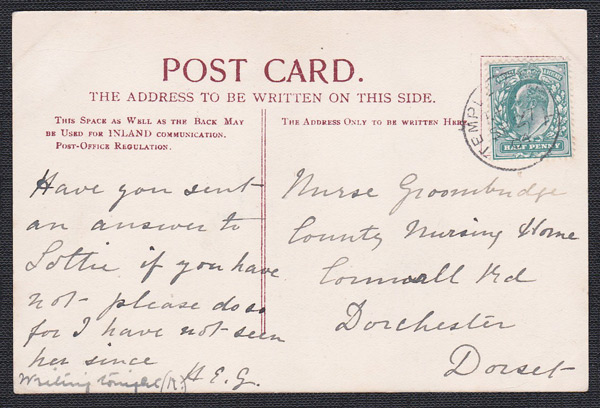 POST CARD.
THE ADDRESS TO BE WRITTEN ON THIS SIDE.
THIS SPACE AS WELL AS THE BACK MAY
BE USED FOR INLAND COMMUNICATION.
POST-OFFICE REGULATION.
THE ADDRESS ONLY TO BE WRITTEN HERE
POSTAGE REVENUE
HALF PENNY
TEMPL
Have you sent
an answer to
Lottie if you have
not please do so
for I have not seen
her since
H E.G.
Writing tonight (K.)
Nurse Groombridge
County Nursing Home
Cornwall Rd
Dorchester
Dorset